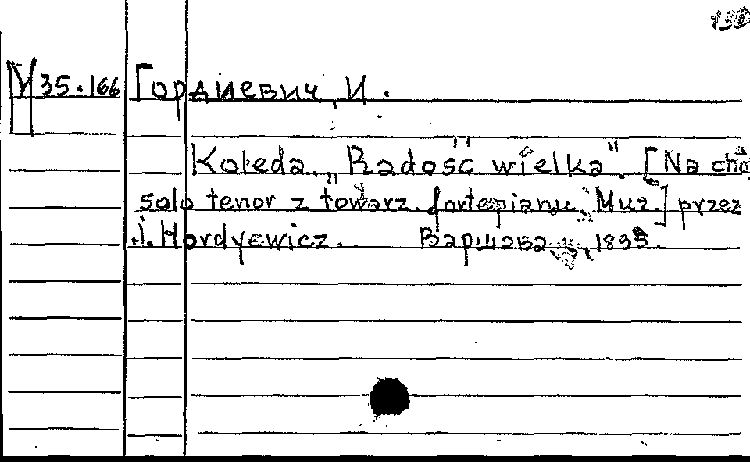 М 35.166 Гордиевич, И.
Kolęda. „Radość wielka". [Na chó
solo tenor z towarz. fortepianu. Muz.] przez
J. Hordyewicz. Варшава, 1895.